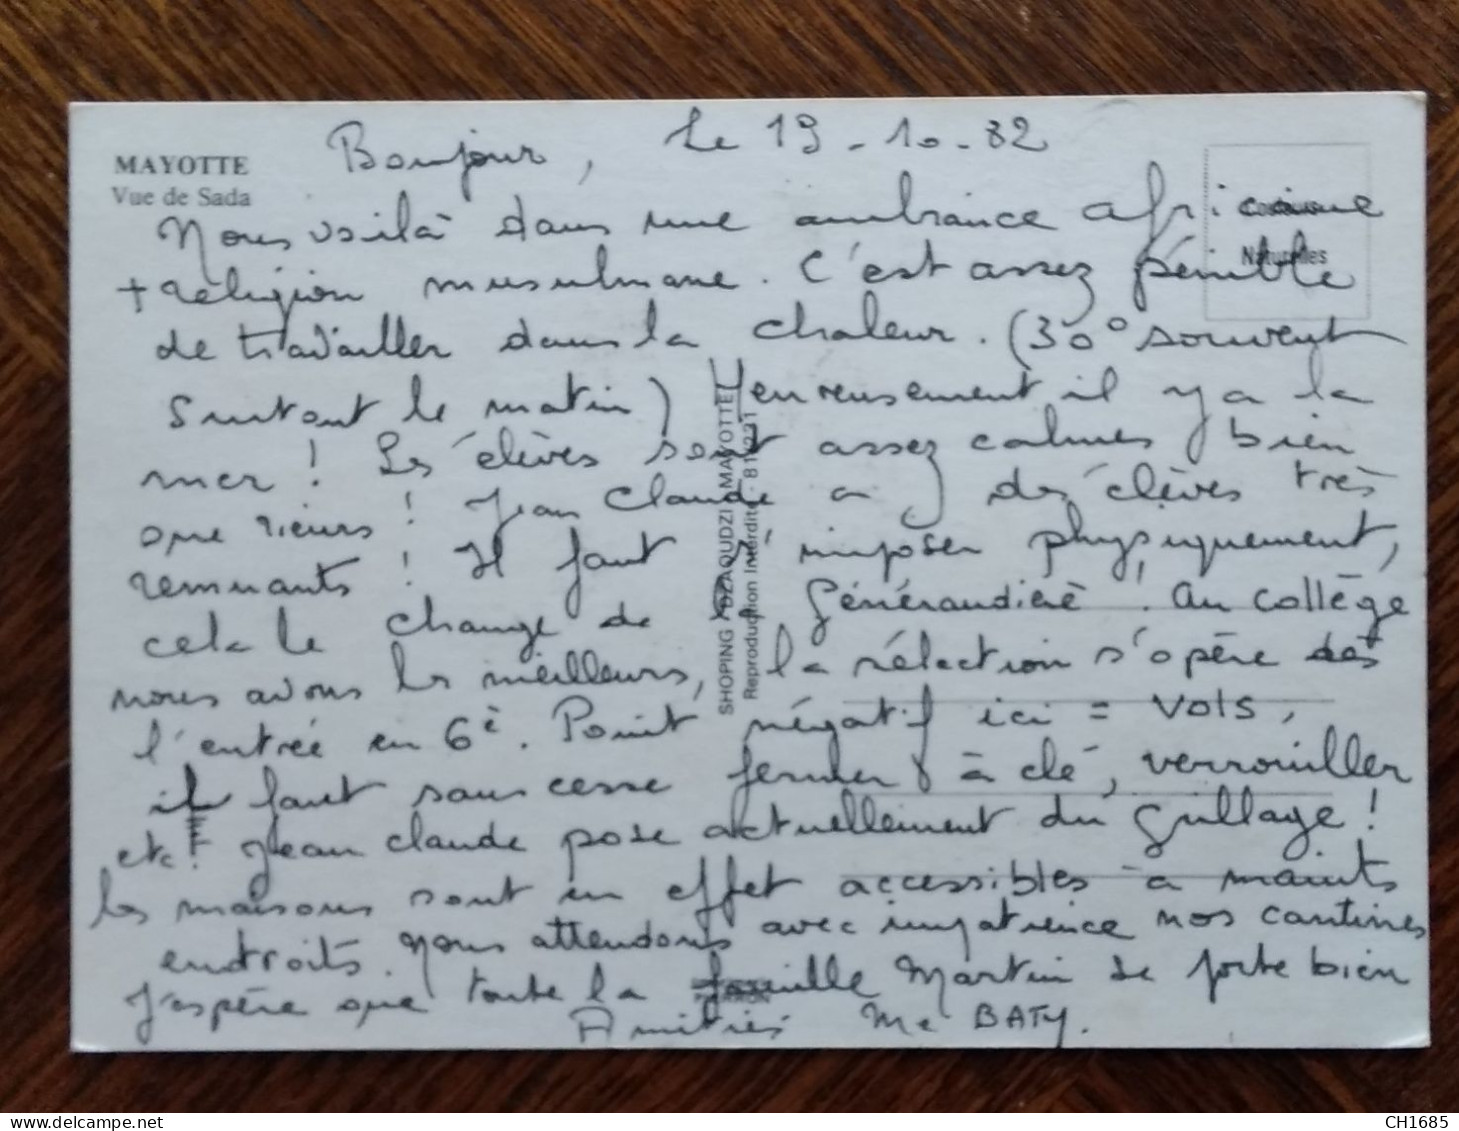 MAYOTTE
Vue de Sada
Bonjour, Le 19-10-82
Nous voilà dans une ambiance africaine
+ religion musulmane. C'est assez pénible
de travailler dans la chaleur. (30° souvent
surtout le matin) Heureusement il y a la
mer ! Les élèves sont assez calmes, bien
que rieurs ! Jean Claude a des élèves très
remuants ! Il faut s'imposer physiquement,
cela le change de la Généraudière ! Au collège
nous avons les meilleurs, la sélection s'opère dès
l'entrée en 6è. Point négatif ici = vols,
il faut sans cesse fermer à clé, verrouiller
etc ! Jean Claude pose actuellement du grillage !
les maisons sont en effet accessibles à maints
endroits. Nous attendons avec impatience nos cantines
J'espère que toute la famille Martin se porte bien
Amitiés Me BATY.
Naturelles
SHOPING DZAOUDZI MAYOTTE
Reproduction Interdite
CH1685